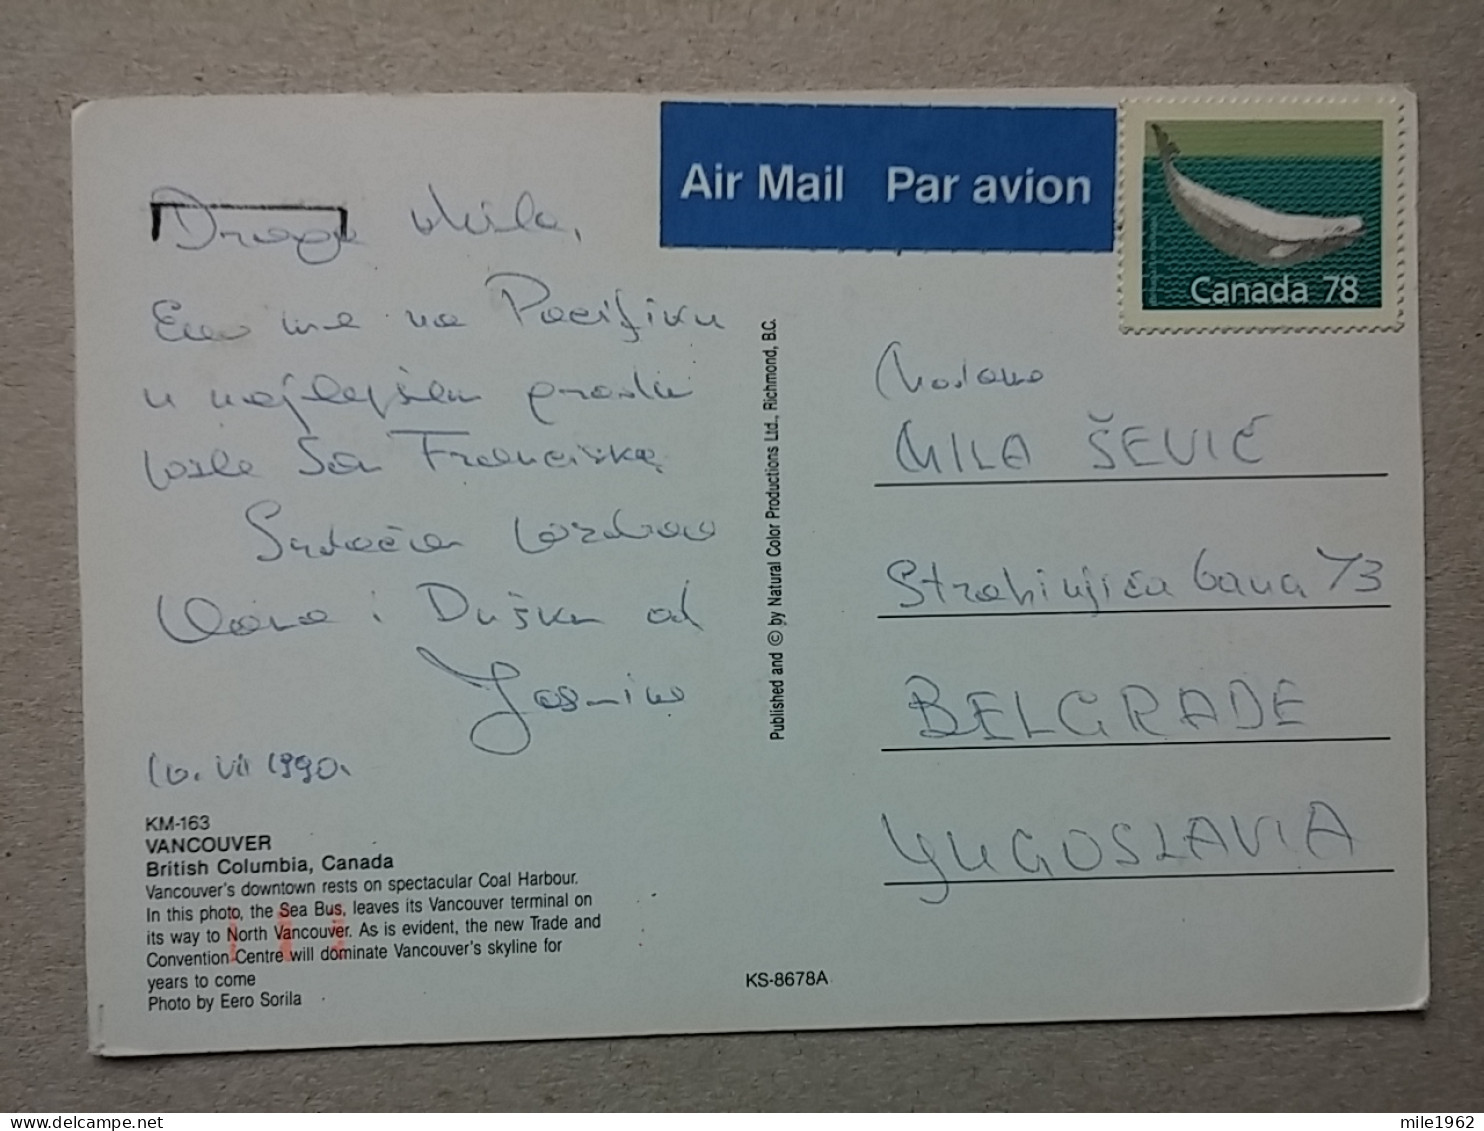 Air Mail Par avion
Canada 78
Draga Mila,
Evo me na Pacifiku
u najlepšem gradu
posle San Franciska.
Srdačan pozdrav
Vama i Dušku od
Jasmine
10. VII 1990.
KM-163
VANCOUVER
British Columbia, Canada
Vancouver's downtown rests on spectacular Coal Harbour.
In this photo, the Sea Bus, leaves its Vancouver terminal on
its way to North Vancouver. As is evident, the new Trade and
Convention Centre will dominate Vancouver's skyline for
years to come
Photo by Eero Sorila
KS-8678A
Published and © by Natural Color Productions Ltd., Richmond, B.C.
MILA ŠEVIĆ
Strahinjića bana 73
BELGRADE
YUGOSLAVIA
mile1962